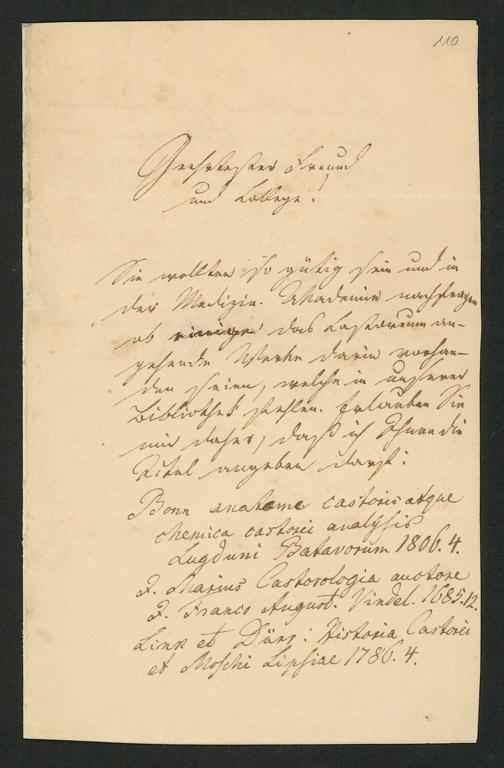 110
Geehrtester Freund
und College!
Sie wollten so gütig sein und in
der Medizin. Akademie nachfragen
ob einige das Castoreum an-
gehende Werke darin vorhan-
den seien, welche in unserer
Bibliothek fehlen. Erlauben Sie
mir daher, daß ich Ihnen die
Titel angeben darf:
Bonn anatome castoris atque
chemica castorei analysis
Lugduni Batavorum 1806. 4.
J. Marius Castorologia auctore
J. Franco August. Vindel. 1685. 12.
Link et Dürr: Historia Castorei
et Moschi Lipsiae 1786. 4.